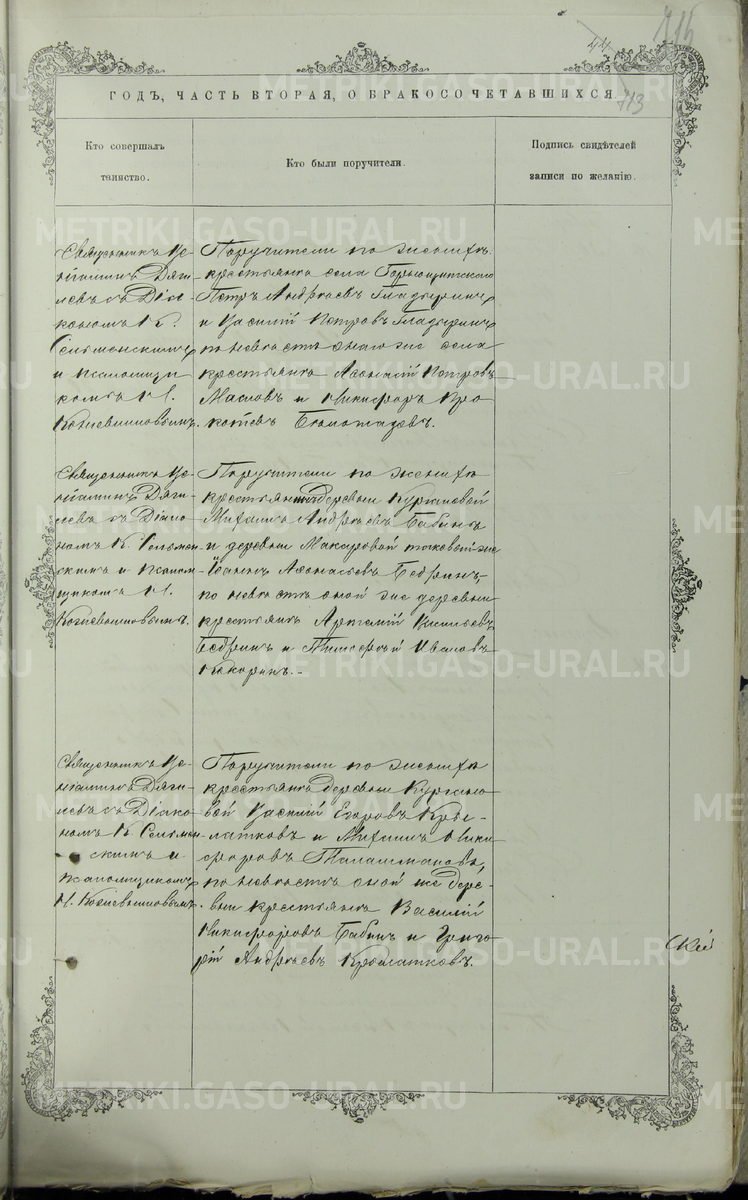 44
715
713
ГОДЪ, ЧАСТЬ ВТОРАЯ, О БРАКОСОЧЕТАВШИХСЯ
Кто совершалъ
таинство.
Кто были поручители.
Подпись свидѣтелей
записи по желанію.
Священникъ Ве-
ніаминъ Дяги-
левъ съ Діа-
кономъ К.
Сельменскимъ
и псаломщи
комъ Н.
Поручители по женихѣ
крестьяне села Горнощитскаго
Петръ Андреевъ Гладыринъ
и Василій Петровъ Гладыринъ
по невѣстѣ онаго же села
крестьяне Аѳонасій Петровъ
Масловъ и Никифоръ Про
котьевъ
Священникъ Ве-
ніаминъ Дяги-
левъ съ Діако
номъ К. Сельмен
скимъ и псалом-
щикомъ Н.
Поручители по женихѣ
крестьяне деревни Кургановой
Михаилъ Андреевъ Бабинъ
и деревни Макаровой таковой же
Іоаннъ Аѳонасьевъ Бедринъ
по невѣстѣ оной же деревни
крестьяне Артемій Васильевъ
Бедринъ и Тимоѳей Ивановъ
Кокоринъ.-
Священникъ Ве-
ніаминъ Дяги-
левъ съ Діако
номъ К. Сельмен
скимъ и
псаломщикомъ
Н.
Поручители по женихѣ
крестьяне деревни Кургано
вой Василій Егоровъ Кры-
латковъ и Михаилъ Ники
форовъ Талашмановъ,
по невѣстѣ оной же дере-
вни крестьяне Василій
Никифоровъ Бабинъ и Григо
рій Андреевъ Крылатковъ.
ской
METRIKI.GASO-URAL.RU